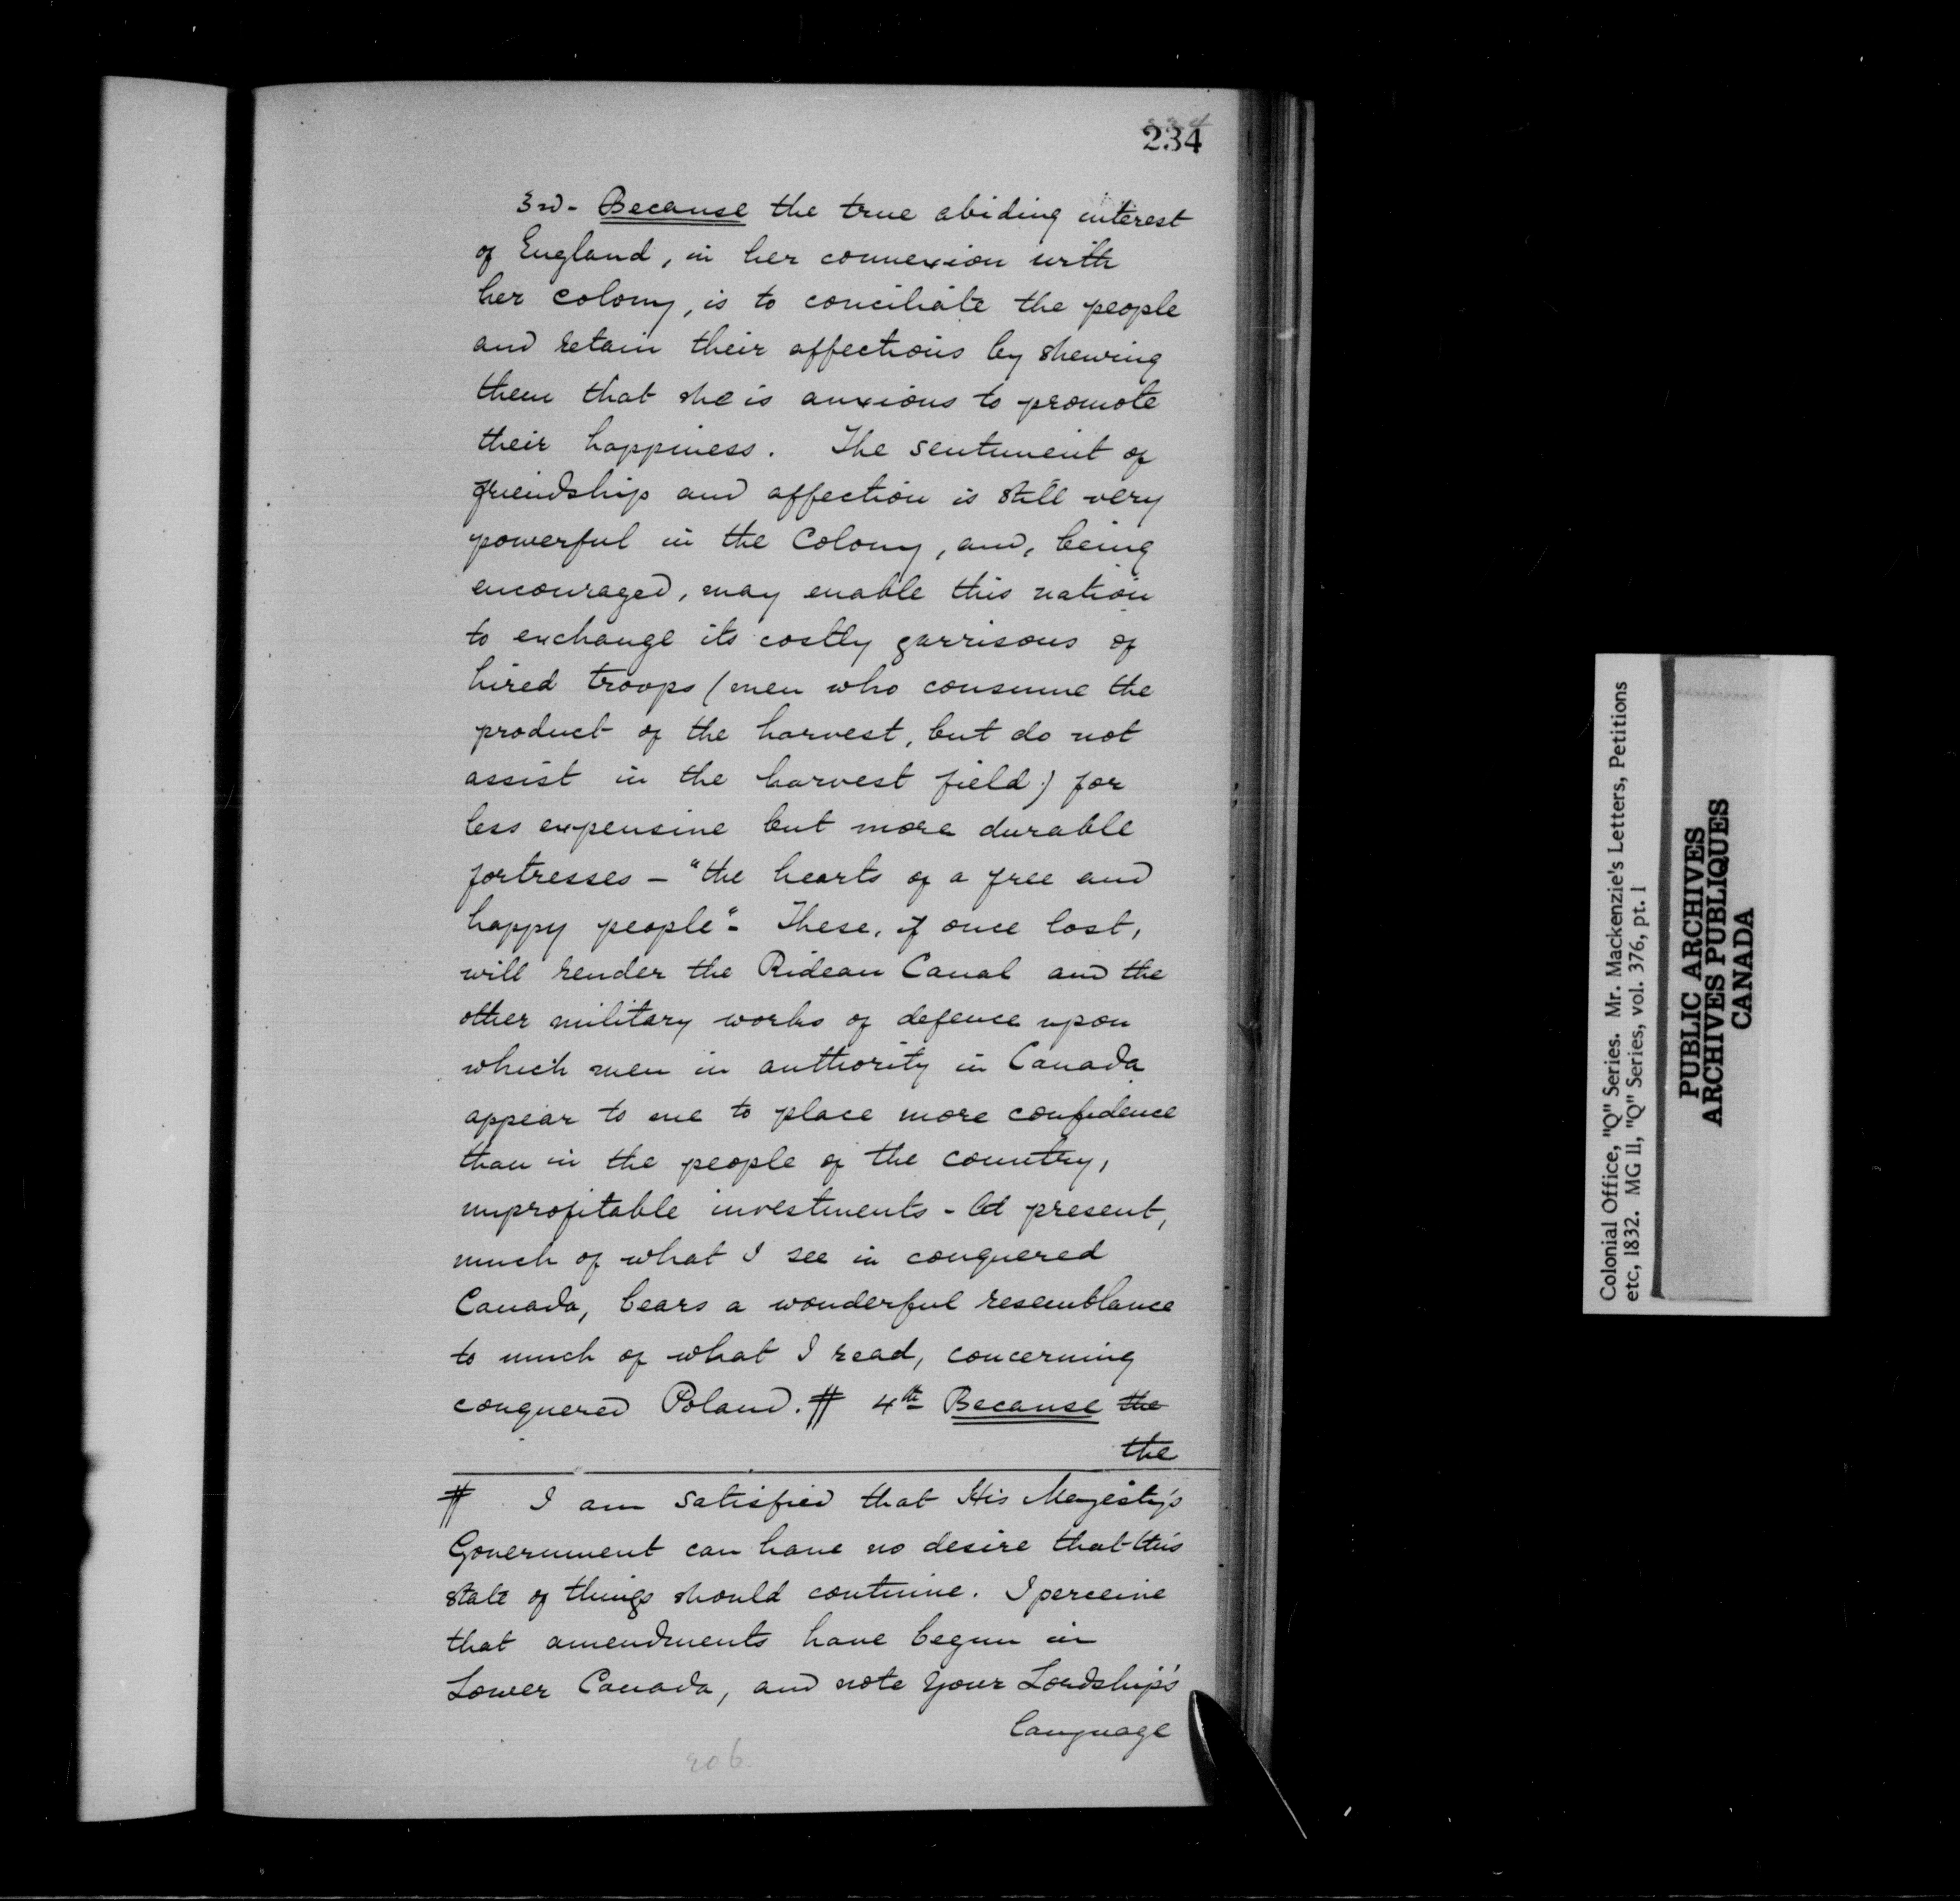 234
3rd - Because the true abiding interest
of England, in her connexion with
her colony, is to conciliate the people
and retain their affections by shewing
them that she is anxious to promote
their happiness. The sentiment of
friendship and affection is still very
powerful in the Colony, and, being
encouraged, may enable this nation
to exchange its costly garrisons of
hired troops (men who consume the
product of the harvest, but do not
assist in the harvest field) for
less expensive but more durable
fortresses - "the hearts of a free and
happy people". These, if once lost,
will render the Rideau Canal and the
other military works of defence upon
which men in authority in Canada
appear to me to place more confidence
than in the people of the country,
unprofitable investments - At present,
much of what I see in conquered
Canada, bears a wonderful resemblance
to much of what I read, concerning
conquered Poland. # 4th Because the
the
# I am satisfied that His Majesty's
Government can have no desire that this
state of things should continue. I perceive
that amendments have begun in
Lower Canada, and note your Lordship's
language
206.
Colonial Office, "Q" Series. Mr. Mackenzie's Letters, Petitions
etc, 1832. MG 11, "Q" Series, vol. 376, pt. 1
PUBLIC ARCHIVES
ARCHIVES PUBLIQUES
CANADA